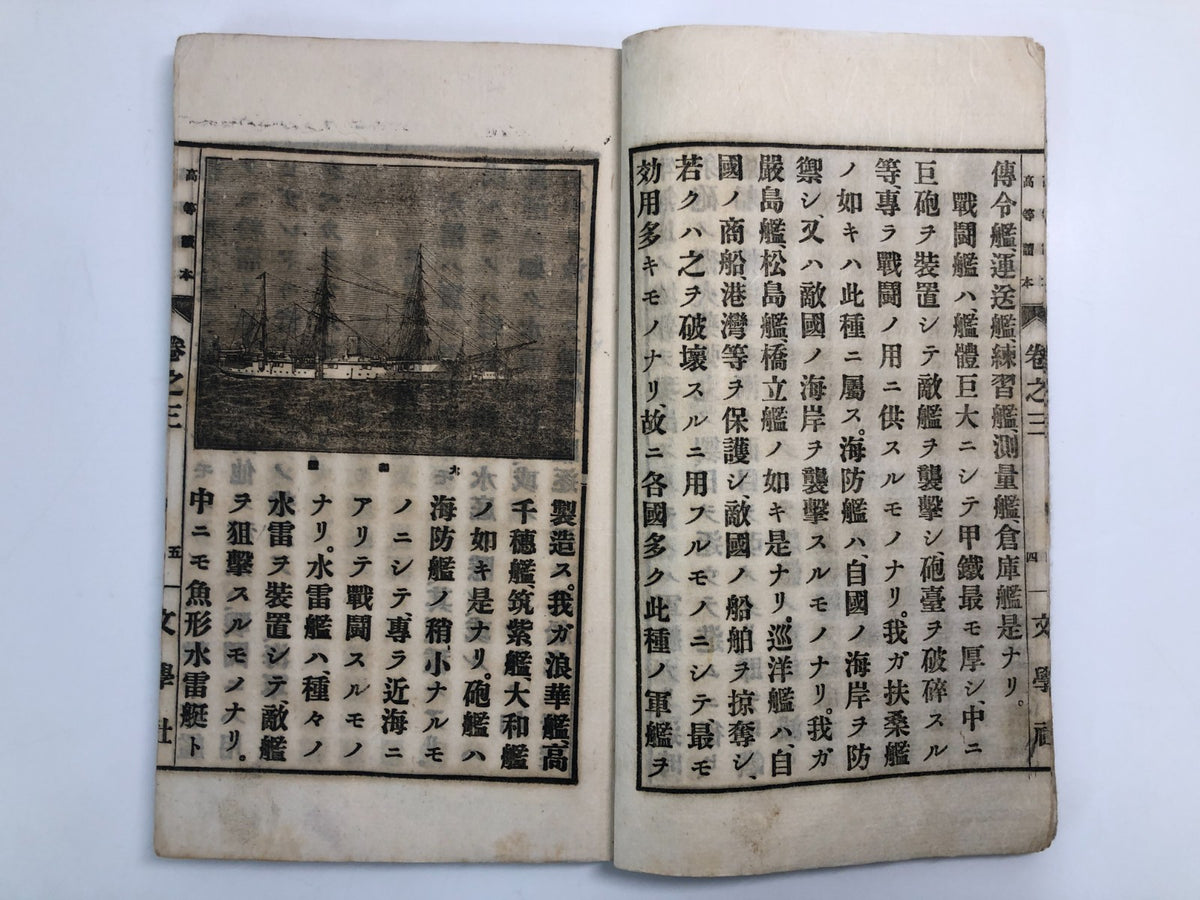 傳令艦、運送艦、練習艦、測量艦、倉庫艦是ナリ。
戰鬪艦ハ、艦體巨大ニシテ甲鐵最モ厚シ、中ニ
巨砲ヲ裝置シテ敵艦ヲ襲擊シ、砲臺ヲ破碎スル
等、專ラ戰鬪ノ用ニ供スルモノナリ。我ガ扶桑艦
ノ如キハ此種ニ屬ス。海防艦ハ、自國ノ海岸ヲ防
禦シ、又ハ敵國ノ海岸ヲ襲擊スルモノナリ。我ガ
嚴島艦、松島艦、橋立艦ノ如キ是ナリ。巡洋艦ハ、自
國ノ商船、港灣等ヲ保護シ、敵國ノ船舶ヲ掠奪シ、
若クハ之ヲ破壞スルニ用フルモノニシテ、最モ
効用多キモノナリ、故ニ各國多ク此種ノ軍艦ヲ
高等讀本
卷之三
四
文學社
製造ス。我ガ浪華艦、高
千穗艦、筑紫艦、大和艦
ノ如キ是ナリ。砲艦ハ
海防艦ノ稍、小ナルモ
ノニシテ、專ラ近海ニ
アリテ戰鬪スルモノ
ナリ。水雷艦ハ、種々ノ
水雷ヲ裝置シテ、敵艦
ヲ狙擊スルモノナリ。
中ニモ魚形水雷艇ト
高等讀本
卷之三
五
文學社